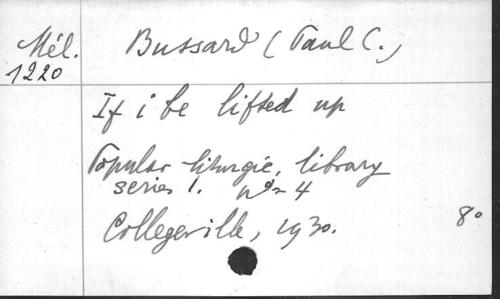 Mél.
1220
Bussard (Paul C.)
If i be lifted up
Popular liturgic. library
series 1. nº 4
Collegeville, 1930.
8º